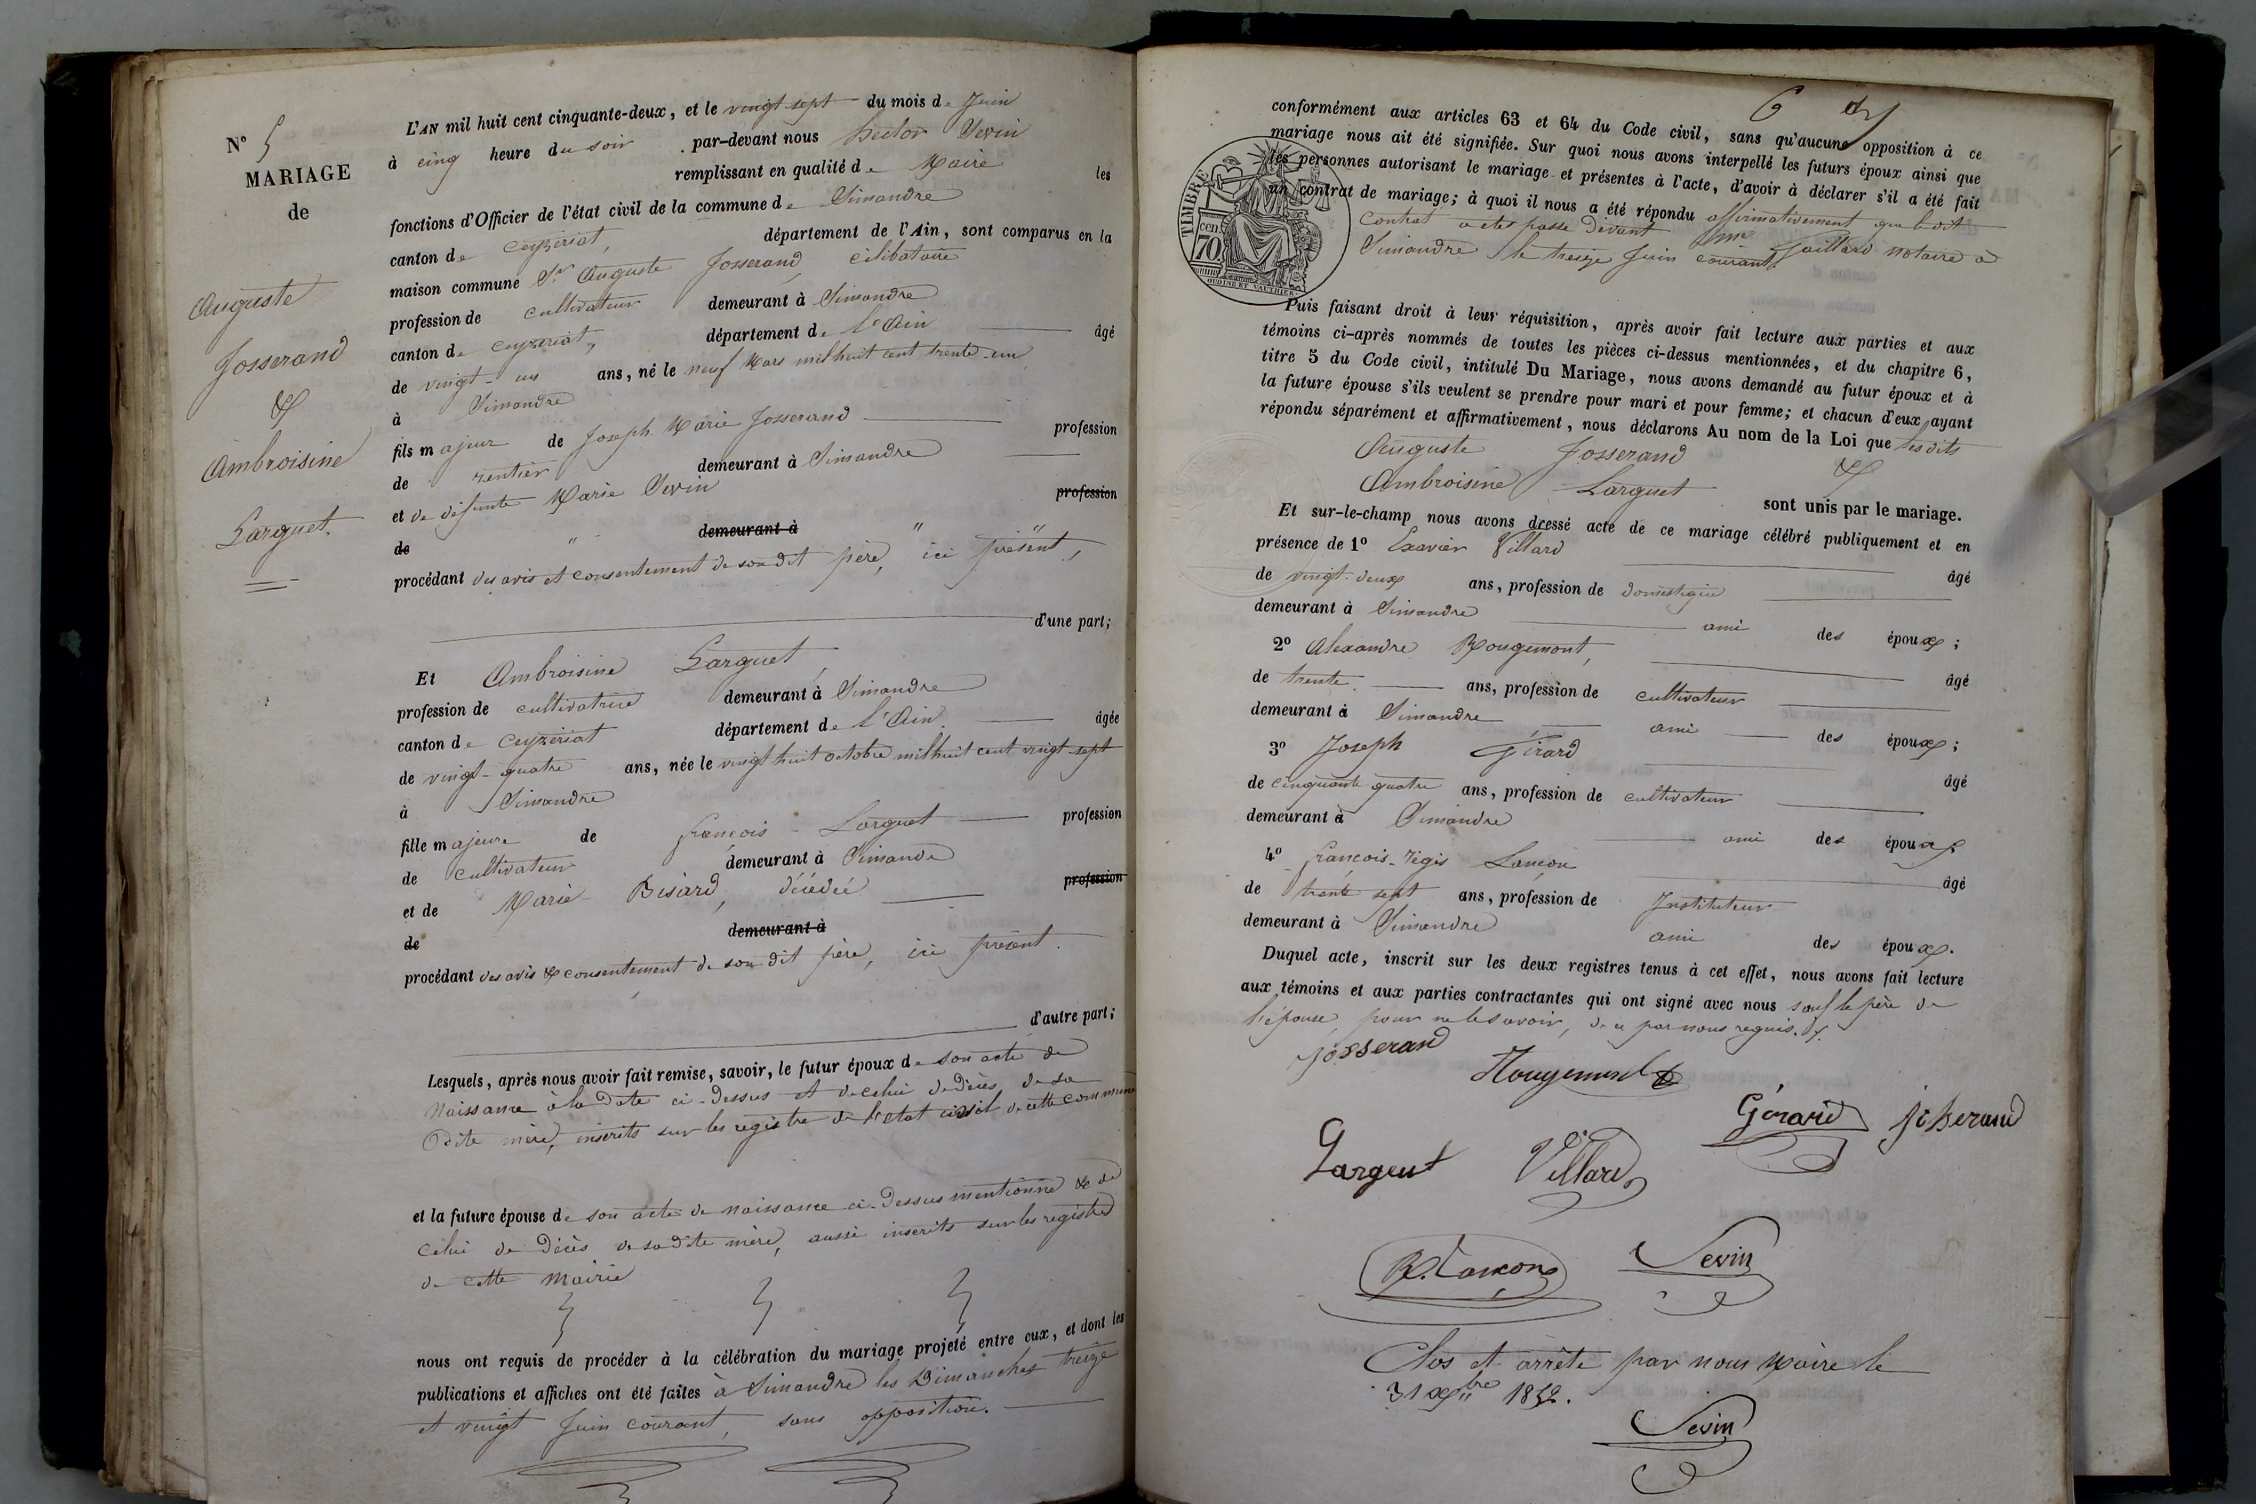 N° 5
MARIAGE
de
Auguste
Josserand
&
Ambroisine
Larguet.
L'AN mil huit cent cinquante-deux, et le vingt sept du mois de Juin
à cinq heure du soir par-devant nous hector Sevin
remplissant en qualité de Maire les
fonctions d'Officier de l'état civil de la commune de Simandre
canton de Ceyzeriat, département de l'Ain, sont comparus en la
maison commune Sr Auguste Josserand célibataire
profession de cultivateur demeurant à Simandre
canton de Ceyzeriat, département de l'Ain âgé
de vingt-un ans, né le neuf Mars mil huit cent trente-un
à Simandre
fils majeur de Joseph Marie Josserand profession
de rentier demeurant à Simandre
et de défunte Marie Sevin profession
de " demeurant à " "
procédant des avis et consentement de son dit père, ici présent,
d'une part;
Et Ambroisine Larguet,
profession de cultivatrice demeurant à Simandre
canton de Ceyzeriat département de l'Ain âgée
de vingt-quatre ans, née le vingt huit octobre mil huit cent vingt sept
à Simandre
fille majeure de françois Larguet profession
de cultivateur demeurant à Simandre
et de Marie Bisard, décédée profession
de demeurant à
procédant des avis & consentement de son dit père, ici présent.
d'autre part;
Lesquels, après nous avoir fait remise, savoir, le futur époux de son acte de
Naissance à la date ci-dessus et de celui de décès de sa
dite mère, inscrits sur les registre de l'état civil de cette commune
et la future épouse de son acte de naissance ci-dessus mentionné & de
celui de décès de sa dite mère, aussi inscrits sur les registres
de cette Mairie
nous ont requis de procéder à la célébration du mariage projeté entre eux, et dont les
publications et affiches ont été faites à Simandre les Dimanches treize
et vingt Juin courant, sans opposition.
6
conformément aux articles 63 et 64 du Code civil, sans qu'aucune opposition à ce
mariage nous ait été signifiée. Sur quoi nous avons interpellé les futurs époux ainsi que
les personnes autorisant le mariage et présentes à l'acte, d'avoir à déclarer s'il a été fait
un contrat de mariage; à quoi il nous a été répondu affirmativement que le dit
contrat a été passé devant Me Gaillard notaire à
Simandre le treize Juin courant.
TIMBRE
70 cen
OUDINÉ ET VAUTHIER
Puis faisant droit à leur réquisition, après avoir fait lecture aux parties et aux
témoins ci-après nommés de toutes les pièces ci-dessus mentionnées, et du chapitre 6,
titre 5 du Code civil, intitulé Du Mariage, nous avons demandé au futur époux et à
la future épouse s'ils veulent se prendre pour mari et pour femme; et chacun d'eux ayant
répondu séparément et affirmativement, nous déclarons Au nom de la Loi que les dits
Auguste Josserand &
Ambroisine Larguet sont unis par le mariage.
Et sur-le-champ nous avons dressé acte de ce mariage célébré publiquement et en
présence de 1° Exavier Villard âgé
de vingt-deux ans, profession de domestique
demeurant à Simandre ami des époux;
2° Alexandre Rougemont, âgé
de trente ans, profession de cultivateur
demeurant à Simandre ami des époux;
3° Joseph Gérard âgé
de cinquante quatre ans, profession de cultivateur
demeurant à Simandre ami des époux;
4° françois-régis Lançon âgé
de trente sept ans, profession de Instituteur
demeurant à Simandre ami des époux.
Duquel acte, inscrit sur les deux registres tenus à cet effet, nous avons fait lecture
aux témoins et aux parties contractantes qui ont signé avec nous sauf le père de
l'épouse, pour ne le savoir, de ce par nous requis.
josserand
Rougemont
Gérard josserand
Larguet Villard
R. Lançon Sevin
Clos et arrêté par nous Maire le
31 Xbre 1852.
Sevin